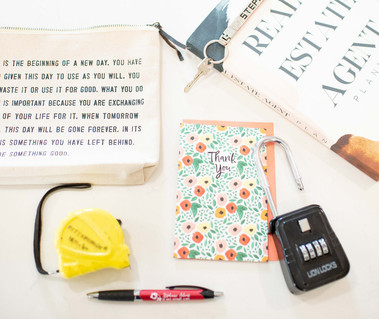 IS THE BEGINNING OF A NEW DAY. YOU HAVE
GIVEN THIS DAY TO USE AS YOU WILL. YOU
WASTE IT OR USE IT FOR GOOD. WHAT YOU DO
IS IMPORTANT BECAUSE YOU ARE EXCHANGING
OF YOUR LIFE FOR IT. WHEN TOMORROW
THIS DAY WILL BE GONE FOREVER. IN ITS
IS SOMETHING YOU HAVE LEFT BEHIND.
SOMETHING GOOD.
REAL
ESTATE
AGENT
PLAN
ESTATE AGENT
Thank
You
LION LOCKS